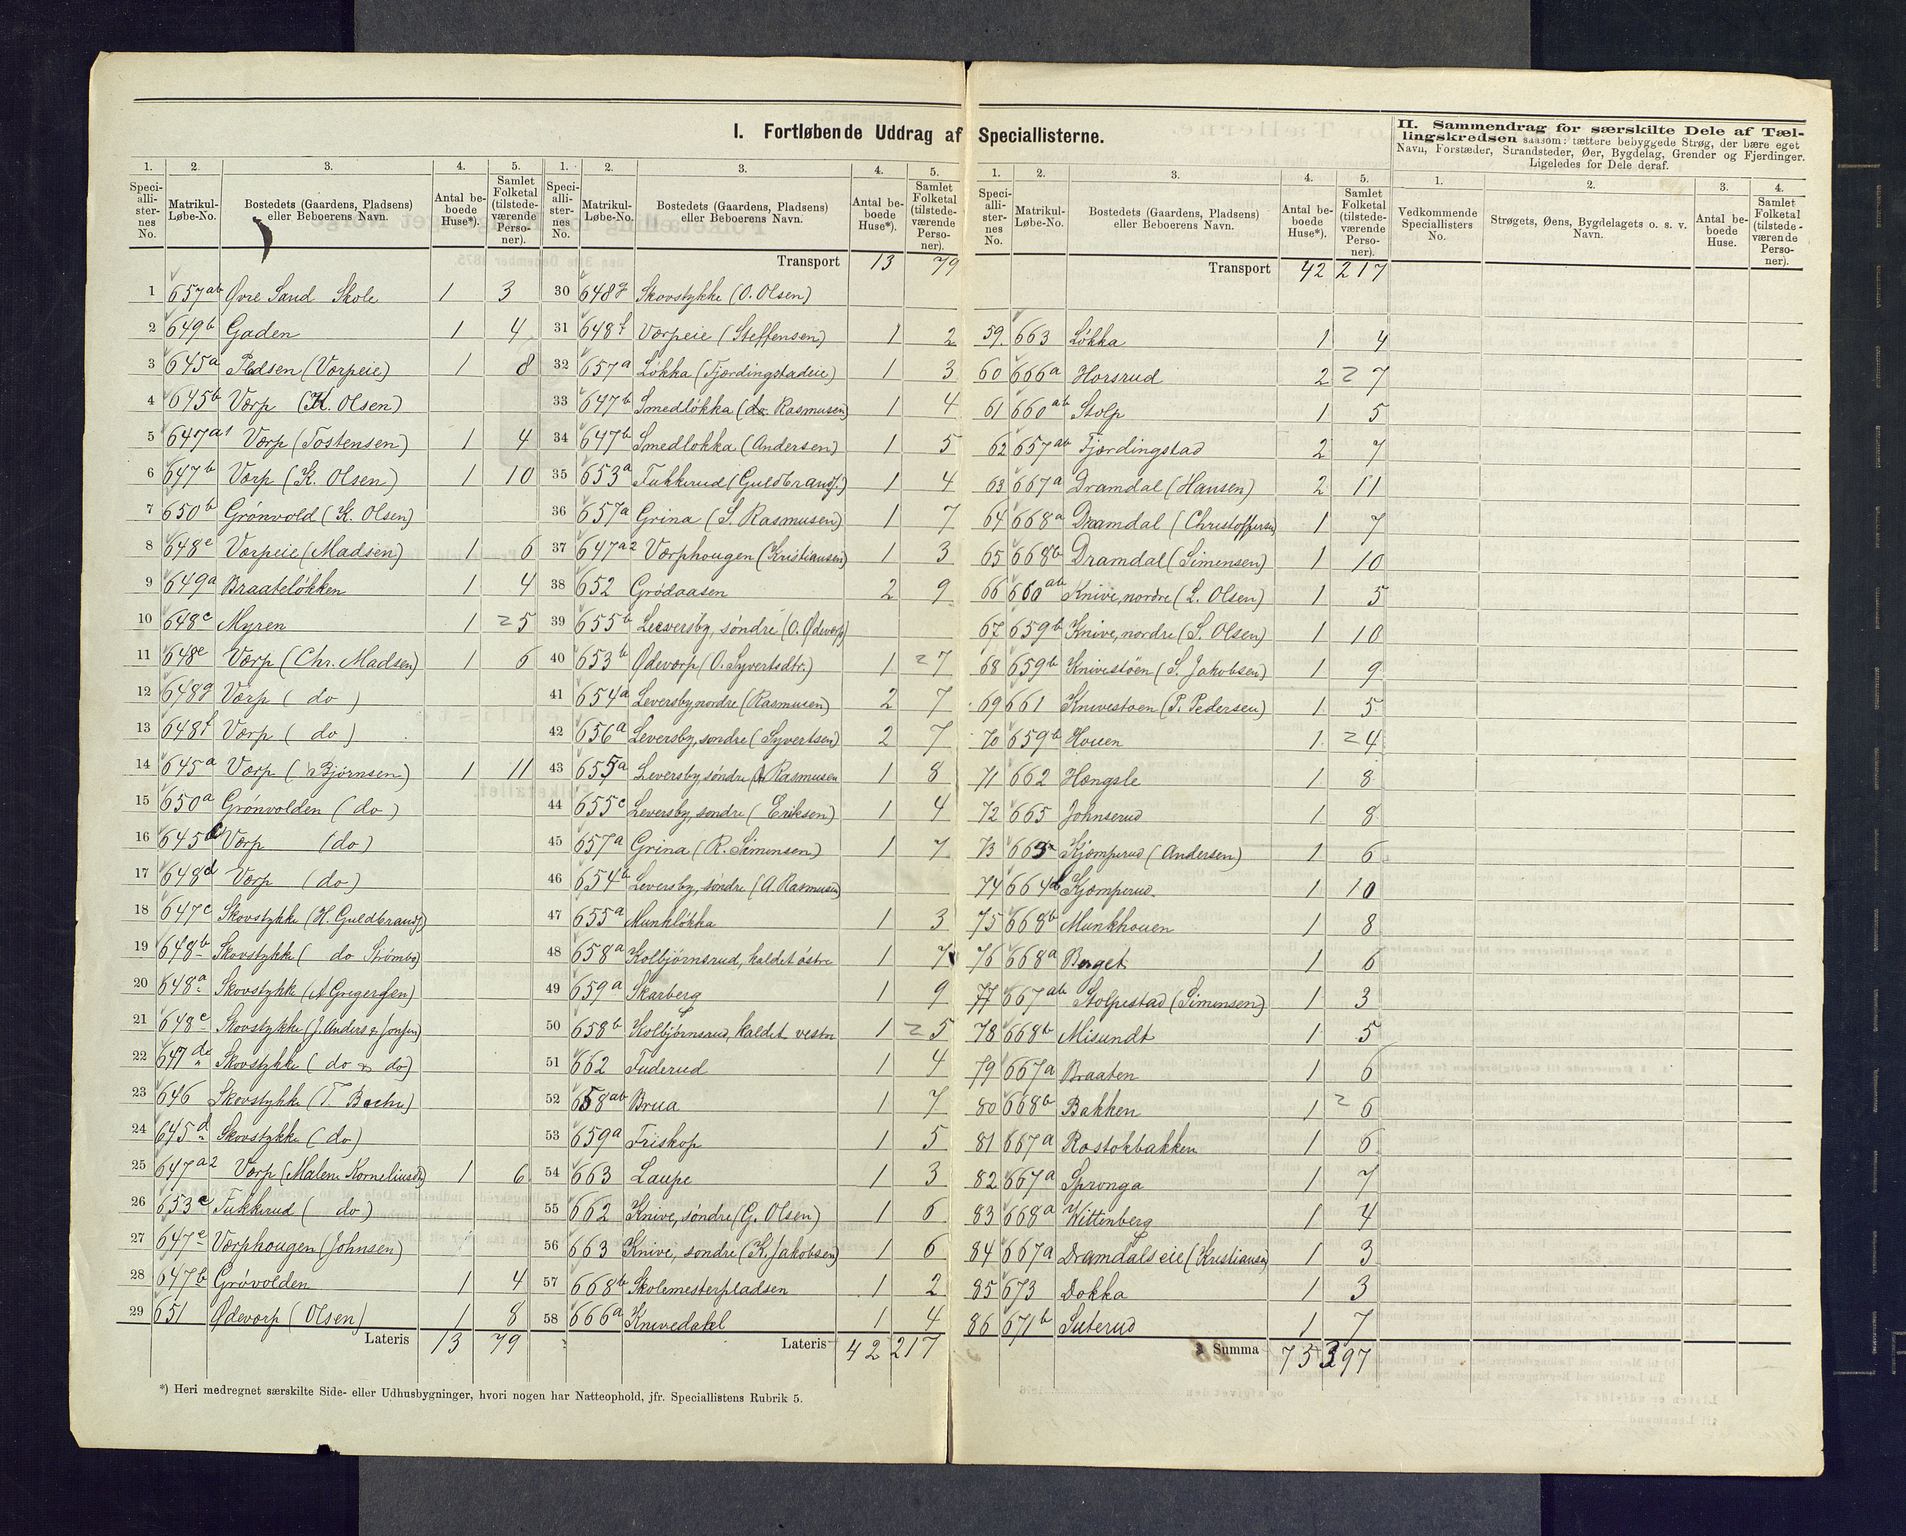 I. Fortløbende Uddrag af Speciallisterne.
II. Sammendrag for særskilte Dele af Tællingskredsen saasom: tættere bebyggede Strøg, der bære eget Navn, Forstæder, Strandsteder, Øer, Bygdelag, Grender og Fjerdinger. Ligeledes for Dele deraf.
1. 2. 3. 4. 5.
Speciallisternes No. Matrikul-Løbe-No. Bostedets (Gaardens, Pladsens) eller Beboerens Navn. Antal beboede Huse*). Samlet Folketal (tilstedeværende Personer).
1 657ab Øvre Sand Skole 1 3
2 649b Gaden 1 4
3 645a (Værpeie) 1 8
4 645b Værp (K. Olsen)
5 647a1 Værp (Tostensen) 1 4
6 647b Værp (K. Olsen) 1 10
7 650b Grønvold (K. Olsen)
8 648e Værpeie (Madsen) 1 6
9 649a Braateløkken 1 4
10 648c Myren 1 2 5
11 648e Værp (Chr. Madsen) 1 6
12 648g Værp (do)
13 648f Værp (do)
14 645a Værp (Bjørnsen) 1 11
15 650a Grønvolden (do)
16 645 Værp (do)
17 648d Værp (do)
18 647c Skovstykke (H. Guldbrands)
19 648b Skovstykke (do Strømbo)
20 648a Skovstykke (A Gregersen)
21 648c Skovstykke (J. Anders & Jonsen)
22 647de Skovstykke (do & do)
23 646 Skovstykke (T. Bache)
24 645d Skovstykke (do)
25 647a2 Værp (Malene Korneliusd) 1 6
26 653c Tukkerud (do)
27 647e Værphougen (Johnsen)
28 647b Grøvolden 1 4
29 651 Ødeværp (Olsen) 1 8
Lateris 13 79
*) Heri medregnet særskilte Side- eller Udhusbygninger, hvori nogen har Natteophold, jfr. Speciallistens Rubrik 5.
1. 2. 3. 4. 5.
Speciallisternes No. Matrikul-Løbe-No. Bostedets (Gaardens, Pladsens) eller Beboerens Navn. Antal beboede Huse*). Samlet Folketal (tilstedeværende Personer).
Transport 13 79
30 648g Skovstykke (O. Olsen)
31 648f Værpeie (Steffensen) 1 2
32 657a Løkka (Fjerdingstadeie) 1 3
33 647b Smedløkka (Rasmusen) 1 4
34 647b Smedløkka (Andersen) 1 5
35 653a Tukkerud (Guldbrands.) 1 4
36 657a Grina (S. Rasmusen) 1 7
37 647a2 Værphougen (Kristiansen) 1 3
38 652 Grødaasen 2 9
39 655b Leversby, søndre (O. Ødeværp)
40 653b Ødeværp (O. Syvertsdtr.) 1 2 7
41 654a Leversby nordre (Rasmusen) 2 7
42 656a Leversby, søndre (Syvertsen) 2 7
43 655a Leversby søndre (Rasmusen 1 8
44 655c Leversby, søndre (Eriksen) 1 4
45 657a Grina (R. Simensen) 1 7
46 654b Leversby, søndre (A. Rasmusen)
47 655a Munkløkka 1 3
48 658a Kolbjørnsrud, kaldet østre 1 7
49 659a Skarberg 1 9
50 658b Kolbjørnsrud, kaldet vestre 1 2 5
51 662 Tuderud 1 4
52 658ab Brua 1 7
53 659a Friskop 1 5
54 663 Laupe 1 3
55 662 Knive, søndre (G. Olsen) 1 6
56 663 Knive, søndre (K. Jakobsen) 1 6
57 668b Skolemesterpladsen 1 2
58 666a Knivedahl 1 4
Lateris 42 217
1. 2. 3. 4. 5.
Speciallisternes No. Matrikul-Løbe-No. Bostedets (Gaardens, Pladsens) eller Beboerens Navn. Antal beboede Huse*). Samlet Folketal (tilstedeværende Personer).
Transport 42 217
59. 663 Løkka 1 4
60 666a Horsrud 2 2 7
61 660ab Stolp 1 5
62 657ab Fjerdingstad 2 7
63 667a Dramdal (Hansen) 2 11
64 668a Dramdal (Christoffersen 1 7
65 668b Dramdal (Simensen) 1 10
66 660ab Knive, nordre (L. Olsen) 1 5
67 659b Knive, nordre (S. Olsen) 1 10
68 659b Knivestøen (S. Jakobsen) 1 9
69 661 Knivestøen (P. Pedersen) 1 5
70 659b Houen 1 2 4
71 662 Hængsle 1 8
72 665 Johnserud 1 8
73 Kjømperud (Andersen) 1 6
74 664b Kjømperud 1 10
75 668b Munkhouen 1 8
76 668a Berget 1 6
77 667ab Stolpestad (Simensen) 1 3
78 668b Misundt 1 5
79 667a Braaten 1 6
80 668b Bakken 1 2 6
81 667a Rostokbakken 1 6
82 667a Spronga 1 7
83 668a Wittenberg 1 4
84 667a Dramdalseie (Kristianse) 1 3
85 673 Dokka 1 3
86 671b Suterud 1 7
Summa 75 397
1. 2. 3. 4.
Vedkommende Speciallisters No. Strøgets, Øens, Bygdelagets o. s. v. Navn. Antal beboede Huse. Samlet Folketal (tilstedeværende Personer).